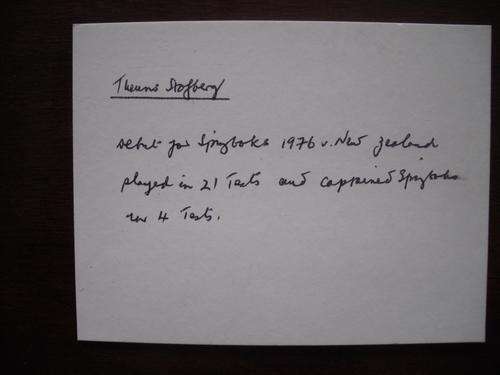 Theuns Stofberg
debut for Springboks 1976 v. New Zealand
played in 21 Tests and captained Springboks
in 4 Tests.